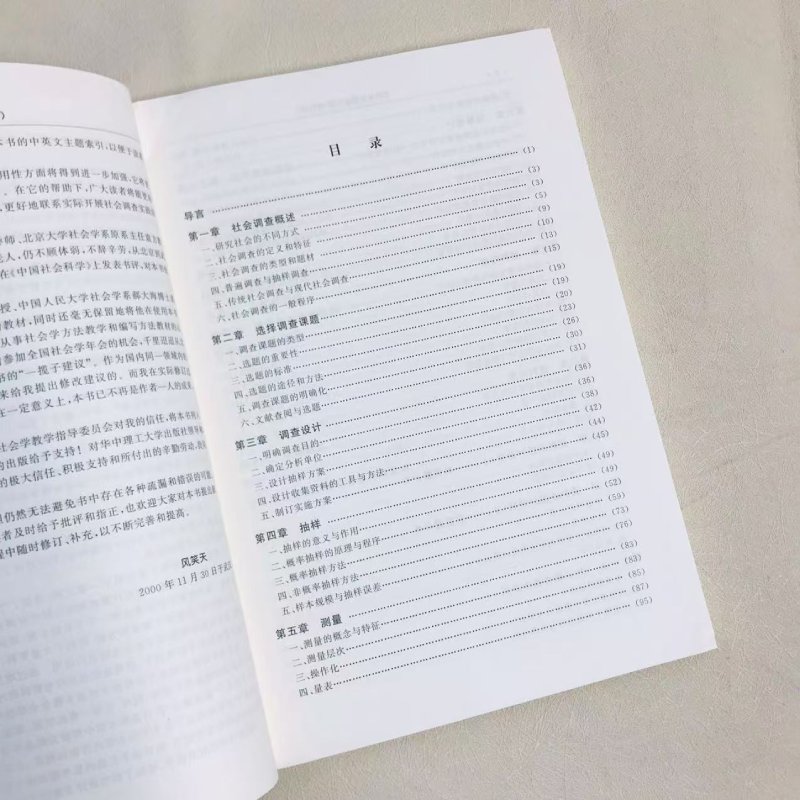 本书的中英文主题索引,以便于读
用性方面将得到进一步加强,它将
。在它的帮助下,广大读者将能
,更好地联系实际开展社会调查实践
导师、北京大学社会学系原系主任袁
老人,仍不顾体弱,不辞辛劳,从北京
在《中国社会科学》上发表书评,对本书
授,中国人民大学社会学系郝大海博士
教材,同时还毫无保留地将他在使用本
从事社会学方法教学和编写方法教材的
参加全国社会学年会的机会,千里迢迢从
书的“一揽子建议”。作为国内同一领域的
来给我提出修改建议的。而我在实际修
在一定意义上,本书已不再是作者一人的成
社会学教学指导委员会对我的信任,将本书列
的出版给予支持!对华中理工大学出版社领导
的极大信任、积极支持和所付出的辛勤劳动,
仍然无法避免书中存在各种疏漏和错误的可能,
者及时给予批评和指正,也欢迎大家对本书
程中随时修订、补充,以不断完善和提高。
风笑天
2000 年 11 月 30 日于
目 录
导言 (1)
第一章 社会调查概述 (3)
一、研究社会的不同方式 (3)
二、社会调查的定义和特征 (5)
三、社会调查的类型和题材 (9)
四、普遍调查与抽样调查 (10)
五、传统社会调查与现代社会调查 (13)
六、社会调查的一般程序 (15)
第二章 选择调查课题 (19)
一、调查课题的类型 (19)
二、选题的重要性 (20)
三、选题的标准 (23)
四、选题的途径和方法 (26)
五、调查课题的明确化 (30)
六、文献查阅与选题 (31)
第三章 调查设计 (36)
一、明确调查目的 (36)
二、确定分析单位 (38)
三、设计抽样方案 (42)
四、设计收集资料的工具与方法 (44)
五、制订实施方案 (45)
第四章 抽样 (49)
一、抽样的意义与作用 (49)
二、概率抽样的原理与程序 (52)
三、概率抽样方法 (59)
四、非概率抽样方法 (73)
五、样本规模与抽样误差 (76)
第五章 测量 (83)
一、测量的概念与特征 (83)
二、测量层次 (85)
三、操作化 (87)
四、量表 (95)